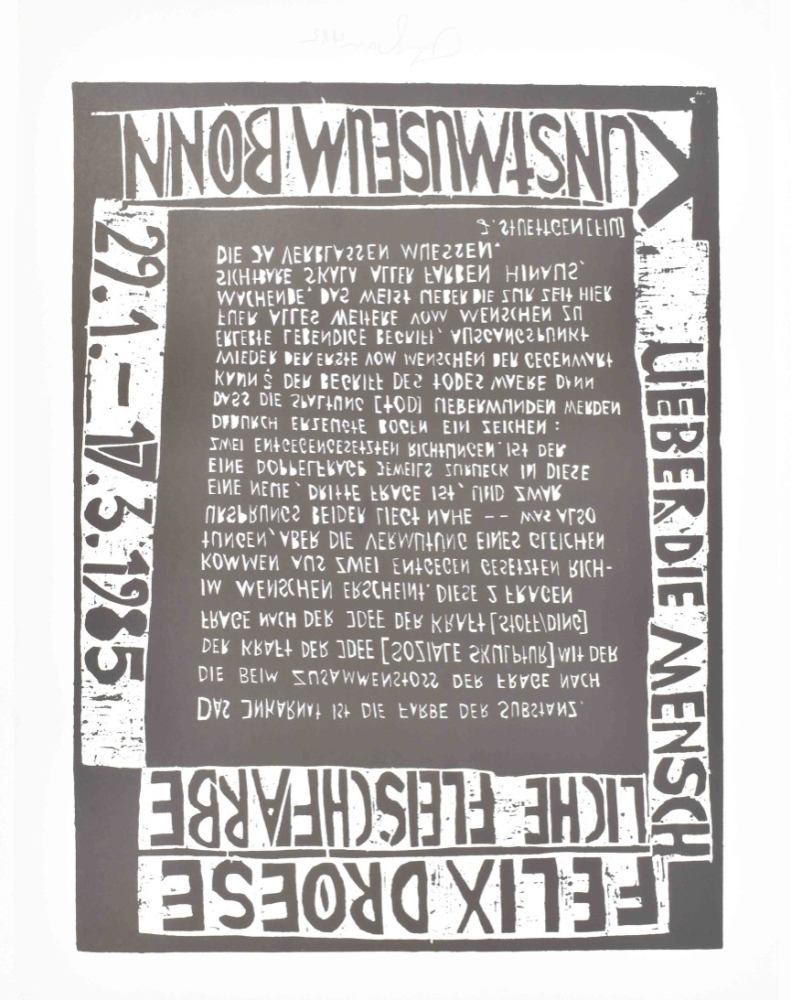 FELIX DROESE
UEBER DIE MENSCH
LICHE FLEISCHFARBE
DAS JNKARNAT IST DIE FARBE DER SUBSTANZ.
DIE BEIM ZUSAMMENSTOSS DER FRAGE NACH
DER KRAFT DER JDEE [SOZIALE SKULPTUR] MIT DER
FRAGE NACH DER JDEE DER KRAFT [STOFF/DING]
IM MENSCHEN ERSCHEINT. DIESE 2 FRAGEN
KOMMEN AUS ZWEI ENTGEGEN GESETZTEN RICH-
TUNGEN, ABER DIE VERMUTUNG EINES GLEICHEN
URSPRUNGS BEIDER LIEGT NAHE -- WAS ALSO
EINE NEUE, DRITTE FRAGE IST, UND ZWAR
EINE DOPPELFRAGE JEWEILS ZURUECK IN DIESE
ZWEI ENTGEGENGESETZTEN RICHTUNGEN. IST DER
DADURCH ERZEUGTE BOGEN EIN ZEICHEN :
DASS DIE SPALTUNG [TOD] UEBERWUNDEN WERDEN
KANN ? DER BEGRIFF DES TODES WAERE DANN
WIEDER DER ERSTE VOM MENSCHEN DER GEGENWART
ERLEBTE LEBENDIGE BEGRIFF, AUSGANGSPUNKT
FUER ALLES WEITERE VOM MENSCHEN ZU
MACHENDE. DAS WEIST UEBER DIE ZUR ZEIT HIER
SICHTBARE SKALA ALLER FARBEN HINAUS,
DIE JA VERBLASSEN MUESSEN.
J. STUETTGEN [FIU]
KUNSTMUSEUM BONN
29.1.–17.3.1985